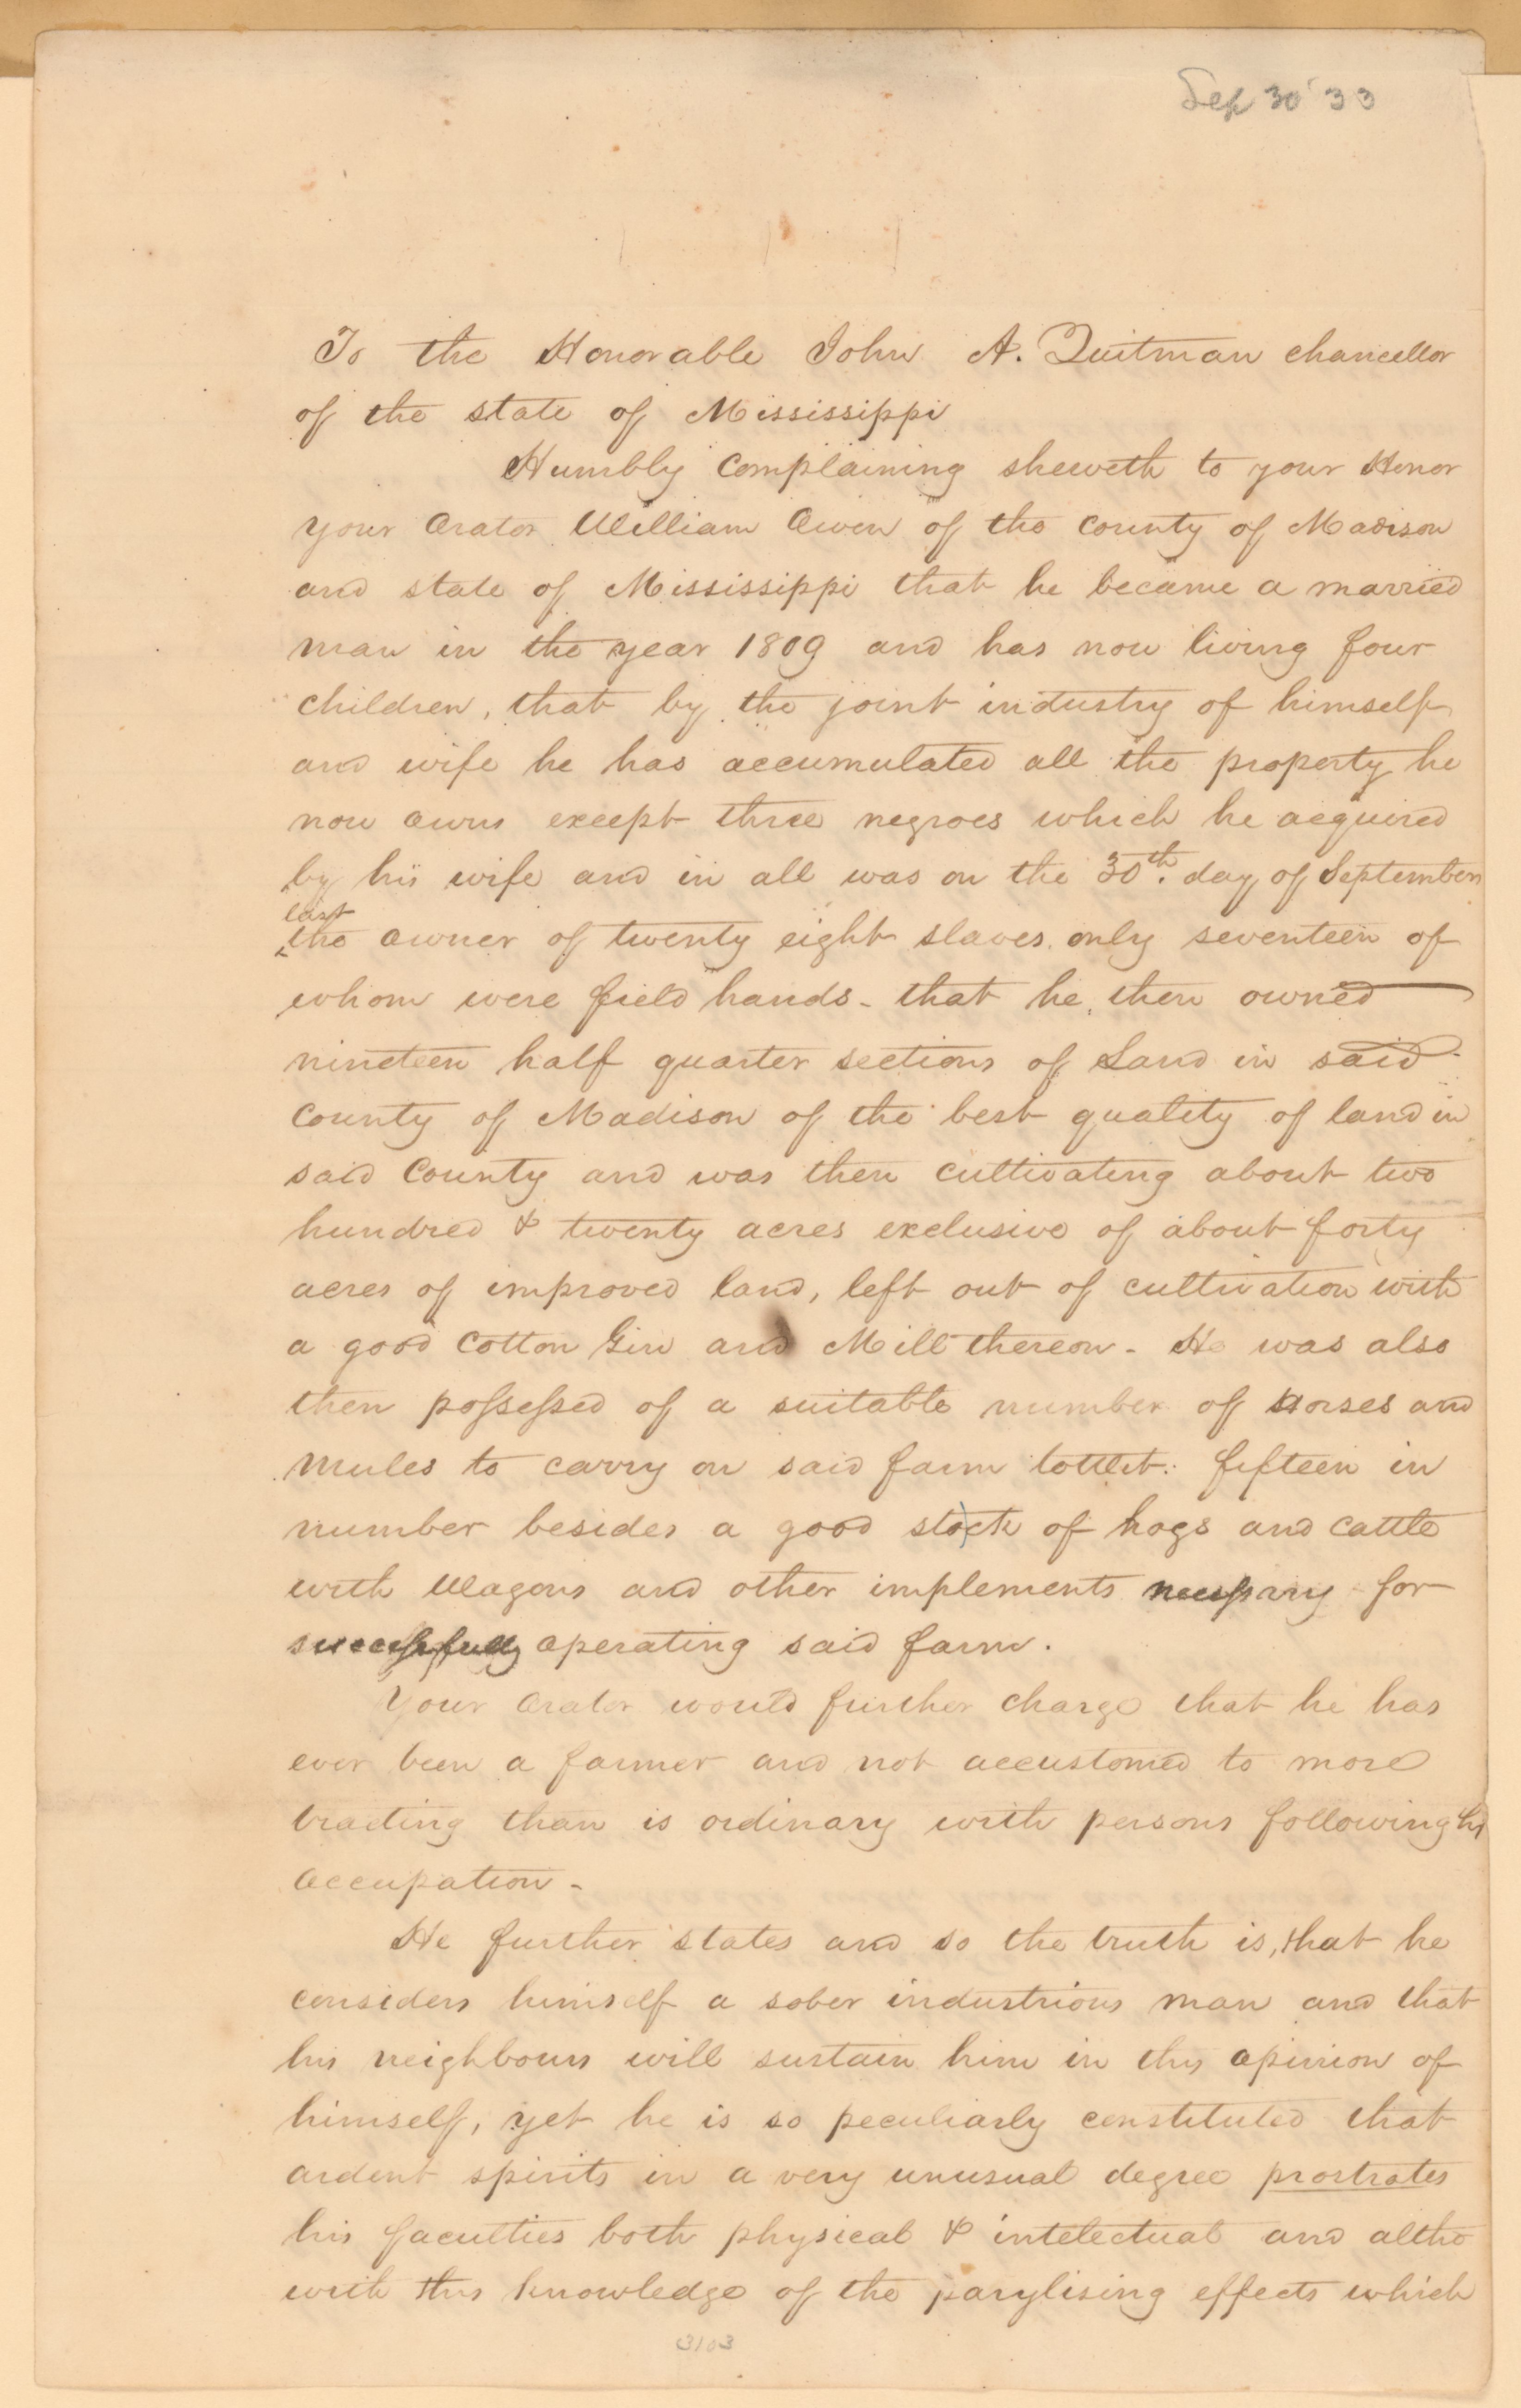 Sep 30 '33
To the Honorable John A. Quitman chancellor
of the state of Mississippi
Humbly complaining sheweth to your Honor
your Orator William Owen of the county of Madison
and state of Mississippi that he became a married
man in the year 1809 and has now living four
children, that by the joint industry of himself
and wife he has accumulated all the property he
now owns except three negroes which he acquired
by his wife and in all was on the 30th. day of September
last
the owner of twenty eight slaves only seventeen of
whom were field hands - that he then owned
nineteen half quarter sections of Land in said
county of Madison of the best quality of land in
said County and was then cultivating about two
hundred & twenty acres exclusive of about forty
acres of improved land, left out of cultivation with
a good Cotton Gin and Mill thereon - He was also
then possessed of a suitable number of Horses and
Mules to carry on said farm fifteen in
number besides a good stock of hogs and cattle
with Wagons and other implements necessary for
successfully operating said farm.
Your Orator would further charge that he has
ever been a farmer and not accustomed to more
trading than is ordinary with persons following his
occupation -
He further states and so the truth is, that he
considers himself a sober industrious man and that
his neighbours will sustain him in this opinion of
himself, yet he is so peculiarly constituted that
ardent spirits in a very unusual degree prostrates
his faculties both physical & intelectual and altho
with this knowledge of the parylising effects which
3103